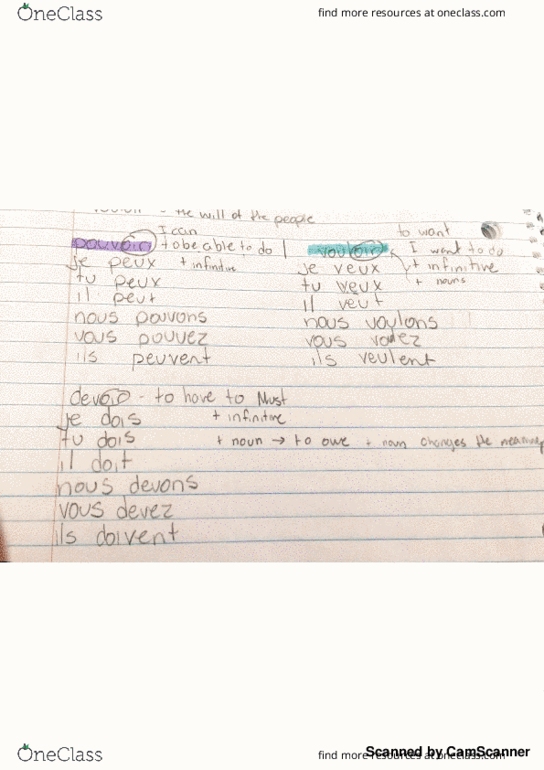 OneClass
find more resources at oneclass.com
- the will of the people
I can
pouvoir to be able to do
je peux + infinitive
tu peux
il peut
nous pouvons
vous pouvez
ils peuvent
to want
vouloir I want to do
je veux + infinitive
tu veux + nouns
il veut
nous voulons
vous voulez
ils veulent
devoir - to have to Must
je dois + infinitive
tu dois + noun → to owe + noun changes the meaning
il doit
nous devons
vous devez
ils doivent
OneClass
find more resources at oneclass.com
Scanned by CamScanner